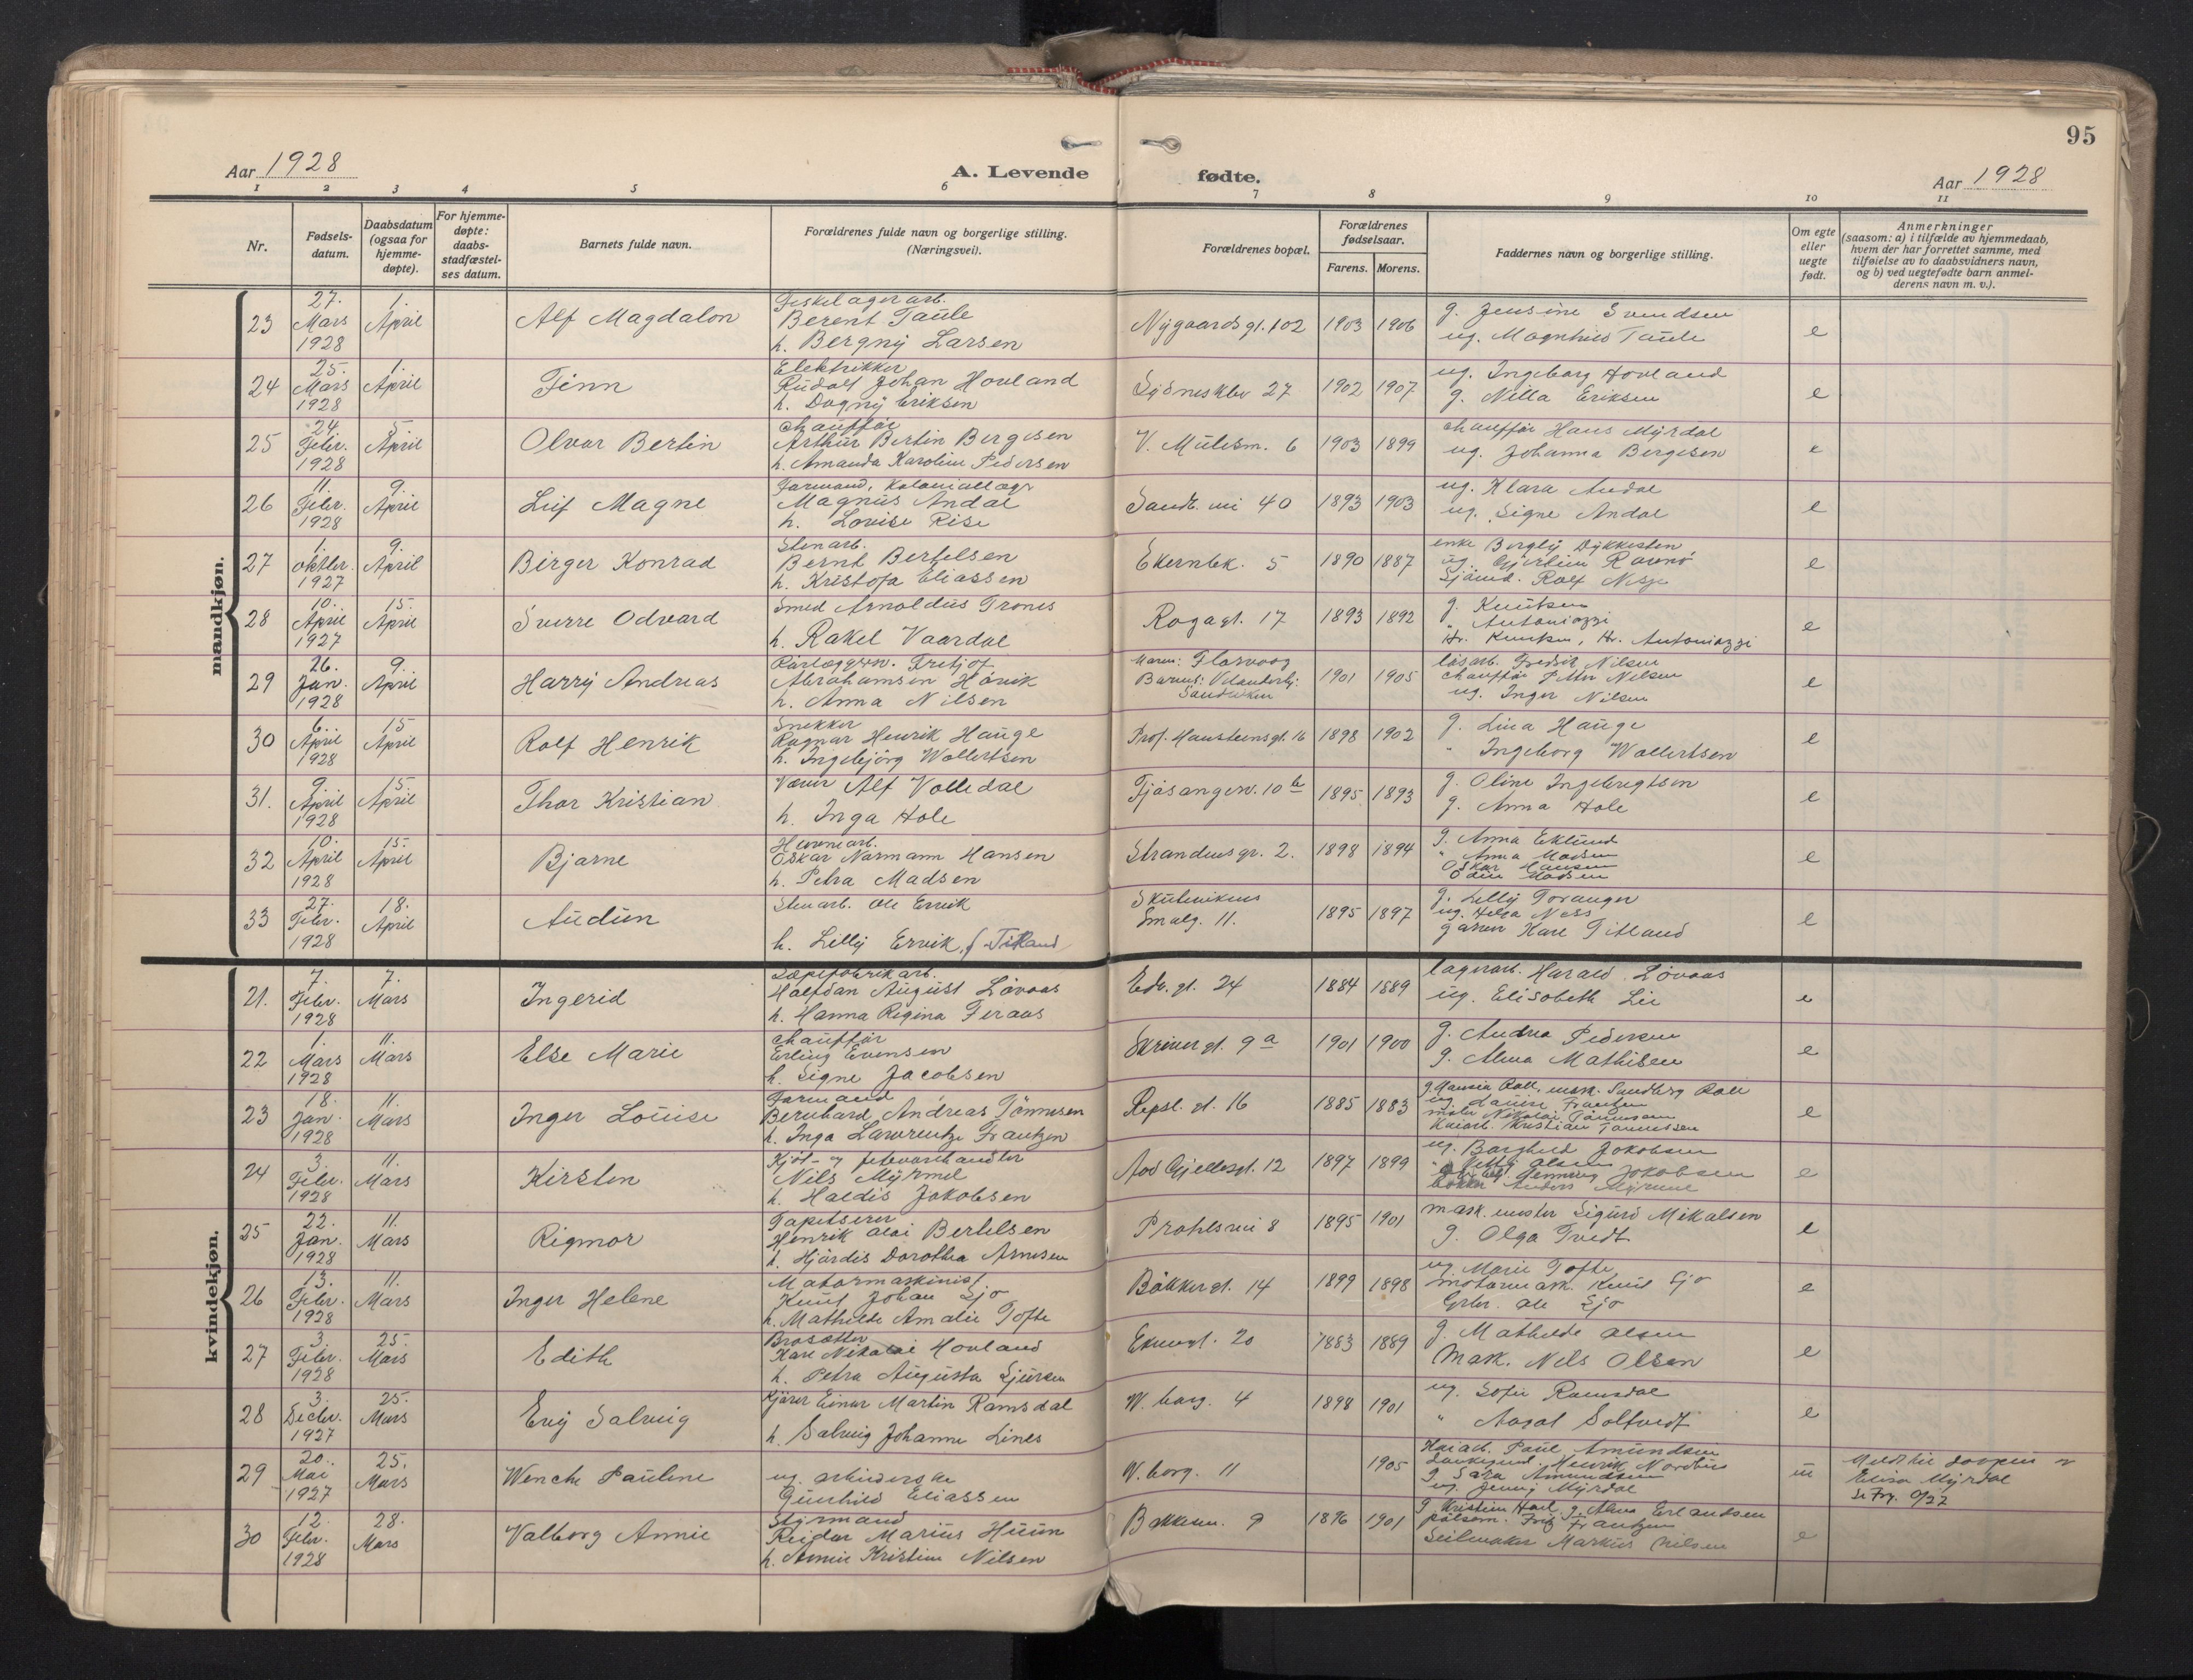 95
Aar 1928
A. Levende
fødte.
Aar 1928
1 2 3 4 5 6 7 8 9 10 11
Nr.
Fødselsdatum.
Daabsdatum (ogsaa for hjemmedøpte).
For hjemmedøpte: daabsstadfæstelses datum.
Barnets fulde navn.
Forældrenes fulde navn og borgerlige stilling. (Næringsvei).
Forældrenes bopæl.
Forældrenes fødselsaar.
Farens. Morens.
Faddernes navn og borgerlige stilling.
Om egte eller uegte født.
Anmerkninger
(saasom: a) i tilfælde av hjemmedaab, hvem der har forrettet samme, med tilføielse av to daabsvidners navn, og b) ved uegtefødte barn anmelderens navn m. v.).
mandkjøn.
23 27. Mars 1928 1. April Alf Magdalon
Berent Taule
h. Bergny Larsen
Nygaardsgt. 102 1903 1906
g. Jensine Svendsen
ug. Magnhild Taule
e
24 25. Mars 1928 1. April Finn
Elektrikker
Rudolf Johan Hovland
h. Dagny Eriksen
Sydneskler 27 1902 1907
ug. Ingeborg Hovland
g. Nilla Eriksen
e
25 24. Febr. 1928 5. April Olvar Bertin
chauffør
Arthur Bertin Bergesen
h. Amanda Karoline Pedersen
V. Mulesm. 6 1903 1899
chauffør Hans Myrdal
ug. Johanna Bergesen
e
26 11. Febr. 1928 9. April Leif Magne
Magnus Andal
h. Lovise Rise
40 1893 1903
ug. Klara Andal
ug. Signe Andal
e
27 1. oktbr. 1927 9. April Birger Konrad
Stenarb.
Bernt Bertelsen
h. Kristofa Eliassen
Ekernbk. 5 1890 1887
enke
Rolf
e
28 10. April 1927 15. April Sverre Odvard
Smed Arnoldus Trones
h. Rakel Vaardal
17 1893 1892
g. Knutsen
" Antoniazzi
Hr. Knutsen, Hr. Antoniazzi
e
29 26. Jan. 1928 9. April Harry Andreas
Abrahamsen
h. Anna Nilsen
Sandviken
1901 1905
Fredrik Nilsen
chauffør Peter Nilsen
ug. Inger Nilsen
e
30 6. April 1928 15 April Rolf Henrik
Snekker
Ragnar Henrik Hauge
h. Ingebjørg Wollertsen
Prof. Hansteensgt. 16 1898 1902
g. Lina Hauge
" Ingeborg Wollertsen
e
31. 9 April 1928 15 April Thor Kristian
Alf Volledal
h. Inga Hole
Fjøsangerv. 10 b 1895 1893
g. Oline Ingebregtsen
g. Anna Hole
e
32 10. April 1928 15. April Bjarne
Oskar Normann Hansen
h. Petra Madsen
Strandens gr. 2. 1898 1894
g. Anna Eklund
" Anna Madsen
Oskar Hansen
Odin Madsen
e
33 27. Febr. 1928 18. April Audun
Stenarb. Ole Ervik
h. Lilly Ervik, f. Titland
Skutevikens
Smalg. 11. 1895 1897
g. Lilly Toranger
ug. Helga Ness
Karl Titland
e
kvindekjøn.
21. 7. Febr. 1928 7. Mars Ingerid
Sæpefabrikarb.
Halfdan August Løvaas
h. Hanna Regina Feraas
Edv. gt. 24 1884 1889
lagerarb. Harald Løvaas
ug. Elisabeth Lie
e
22 1. Mars 1928 11. Mars Else Marie
chauffør
Erling Evensen
h. Signe Jacobsen
Skriver gt. 9 a 1901 1900
g. Andrea Pedersen
g. Alma Mathisen
e
23 18. Jan. 1928 11. Mars Inger Louise
Formand
Bernhard Andreas Tønnesen
h. Inga Lawrentze Frantzen
Repsl. gt. 16 1885 1883
ug. Laura Frantzen
Nikolai Tønnessen
Kristian Tønnessen
e
24 3. Febr. 1928 11. Mars Kirsten
Kjøt- og fetevarehandler
Nils Myrmel
h. Haldis Jakobsen
12 1897 1899
ug. Borghild Jakobsen
Henning Jakobsen
Anders Myrmel
e
25 22. Jan. 1928 11. Mars Rigmor
Tapetserer
Henrik Olai Bertelsen
h. Hjørdis Dorothea Arnesen
8 1895 1901
mask. mester Sigurd Mikalsen
g. Olga Tvedt
e
26 13. Febr. 1928 11. Mars Inger Helene
Motormaskinist
Knut Johan Sjo
h. Mathilde Amalie Tofte
Bakker gt. 14 1899 1898
ug. Marie Tofte
motormask. Knut Sjo
Ole Sjo
e
27 3. Febr. 1928 25. Mars Edith
Karl Nikolai Hovland
h. Petra Augusta Sjursen
20 1883 1889
g. Mathilde Olsen
Mask. Nils Olsen
e
28 3. Decbr. 1927 25. Mars Evy Solveig
Kjører Einar Martin Ramsdal
h. Solveig Johanne Lines
W. borg. 4 1898 1901
ug. Sofie Ramsdal
" Aagot Soltvedt
e
29 20. Mai 1927 25. Mars Wenche Pauline
ug. arbeiderske
Gunhild Eliassen
W. borg. 11 1905
Paul Amundsen
Henrik Nordhus
g. Sara Amundsen
ug. Jenny Myrdal
u
Elisa Myrdal
30 12. Febr. 1928 28. Mars Valborg Annie
Styrmand
Reidar Marius Huun
h. Annie Kristine Nilsen
9 1896 1901
g. Alma Erlandsen
Fritz Frantzen
Seilmaker Markus Nilsen
e